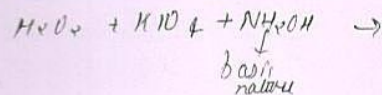 H2O2 + KIO4 + NH2OH →
basic
nature